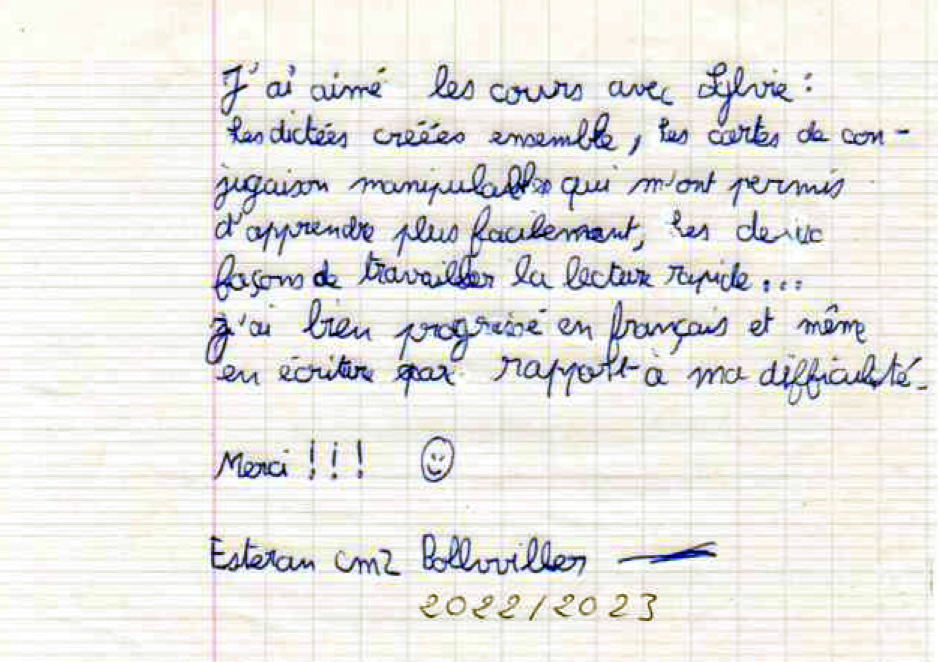 J'ai aimé les cours avec Sylvie :
Les dictées créées ensemble, les cartes de con-
jugaison manipulables qui m'ont permis
d'apprendre plus facilement, les deux
façons de travailler la lecture rapide...
J'ai bien progressé en français et même
en écriture par rapport à ma difficulté.
Merci !!! ☺
Esteran cm2 Bollwiller
2022/2023